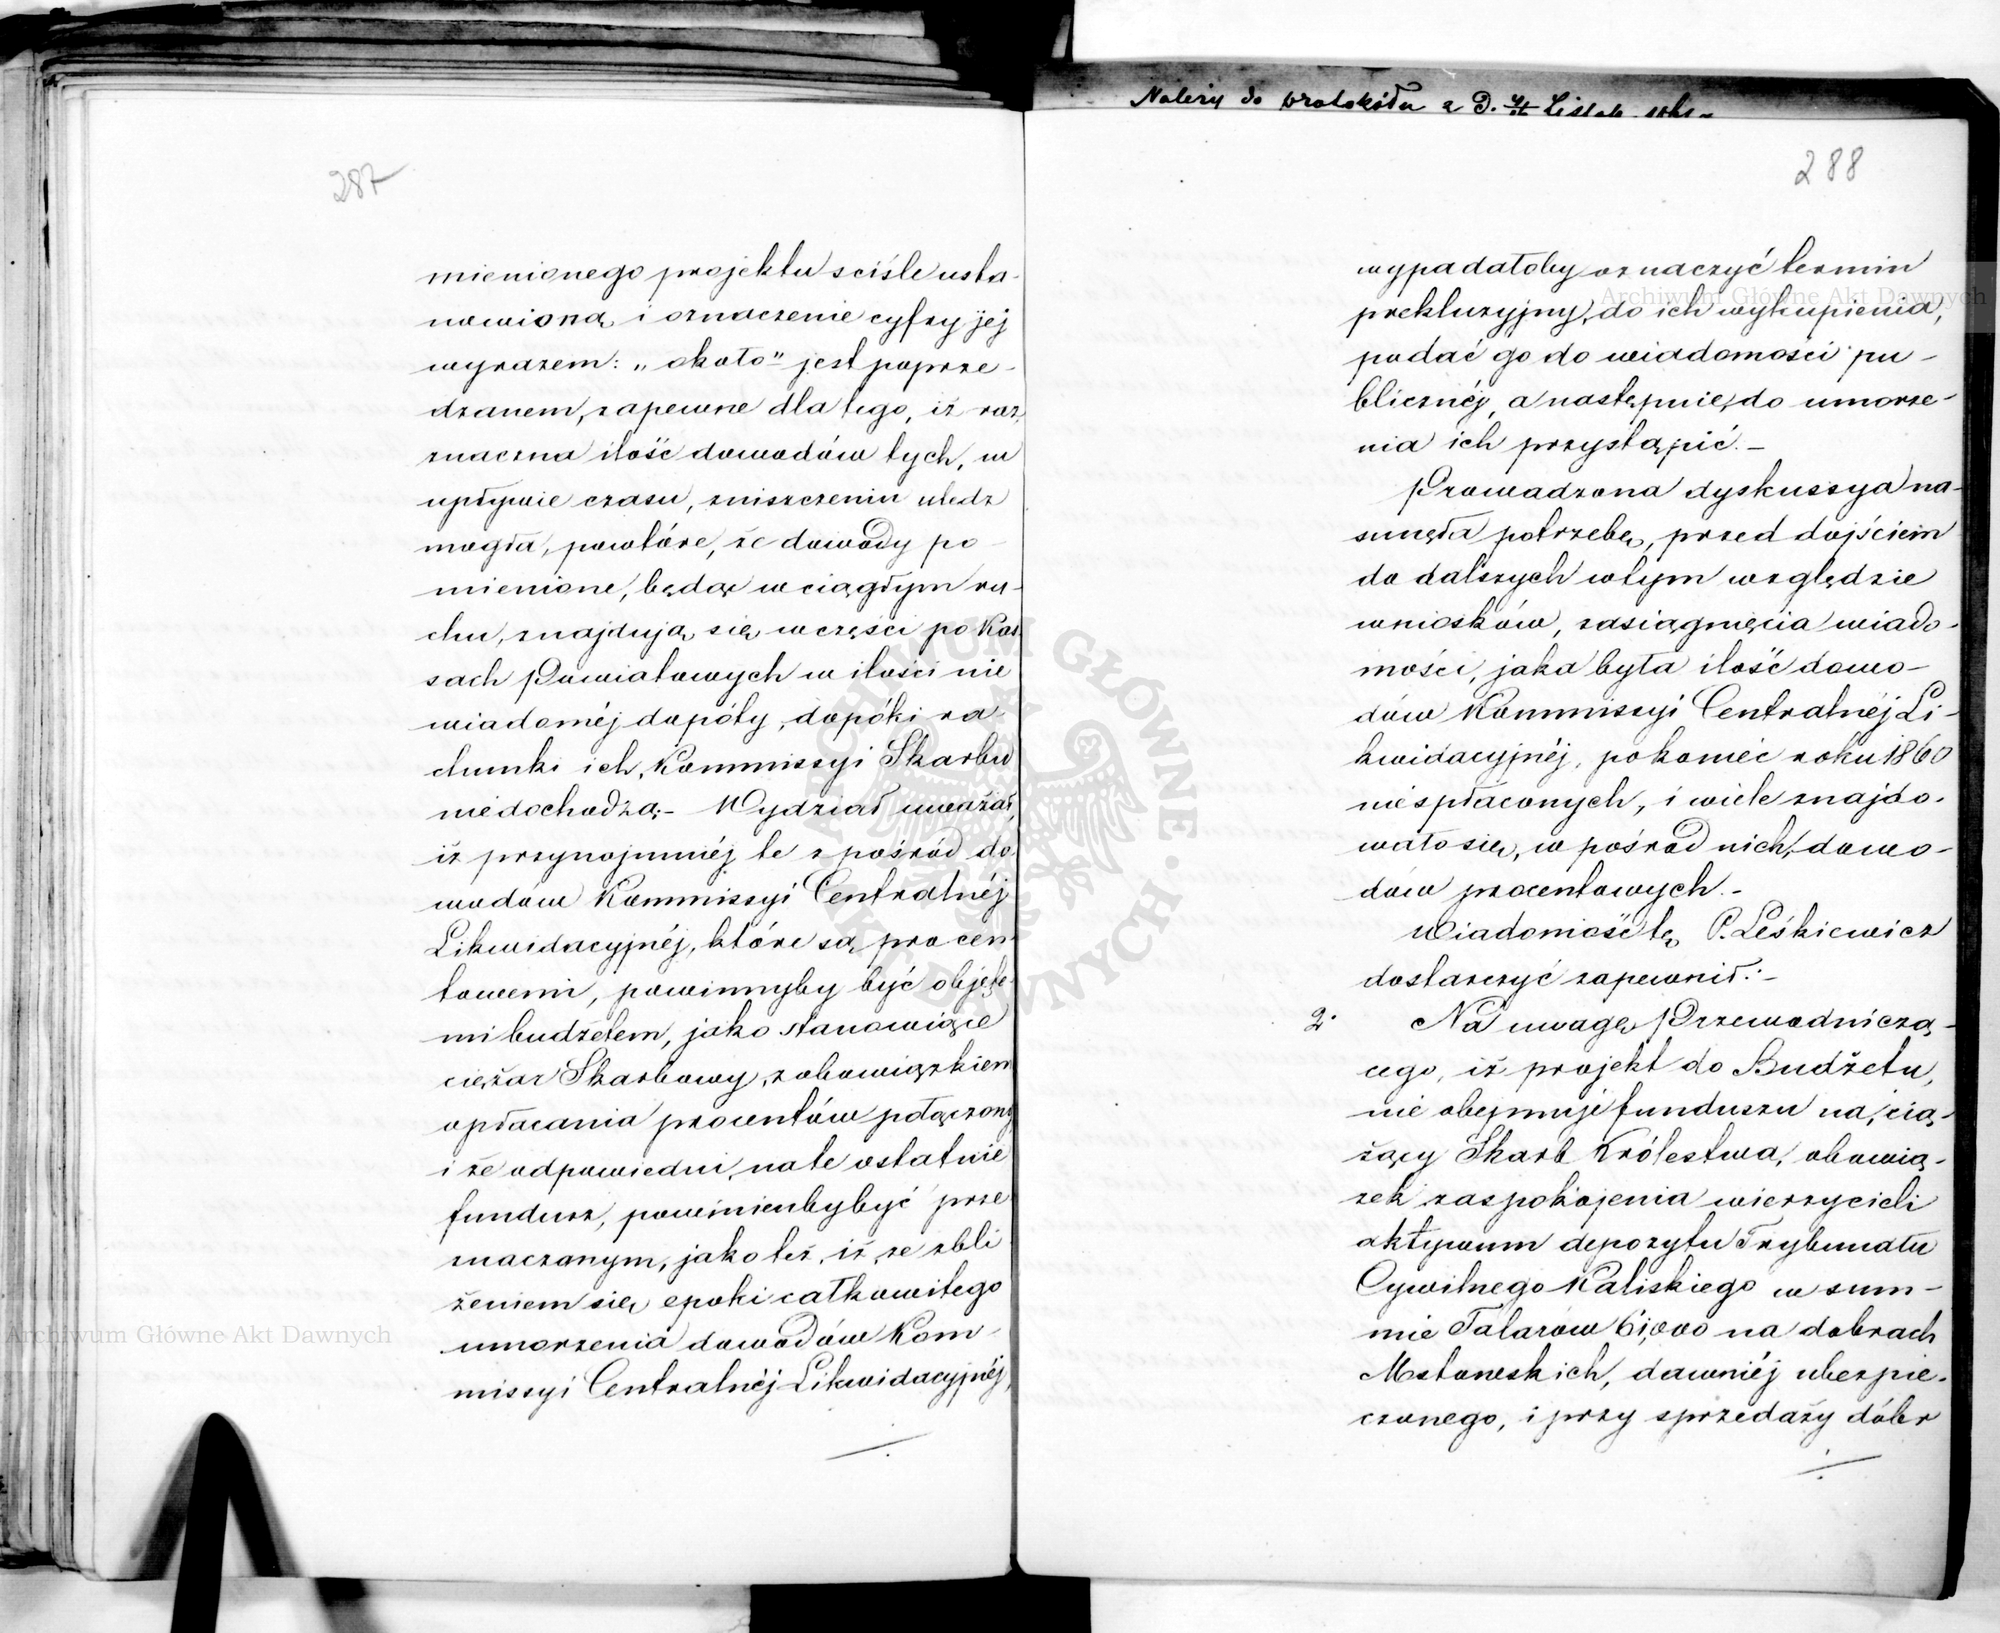 287
mienionego projektu sciśle usta-
nowioną i oznaczenie cyfry jéj
wyrazem: „około" jest poprze-
dzanem, zapewne dla tego, iż raz,
znaczna ilość dowodów tych, w
upływie czasu, zniszczeniu uledz
mogła, powtóre, że dowody po-
mienione, będąc w ciągłym ru-
chu, znajdują się w części po Kas-
sach Powiatowych w ilości nie
wiadoméj dopóty, dopóki ra-
chunki ich, Kommissyi Skarbu
niedochodzą.- Wydział uważał,
iż przynajmniéj te z pośród do-
wodów Kommissyi Centralnéj
Likwidacyjnéj, które są procen-
towemi, powinnyby być objęte-
mi budżetem, jako stanowiące
ciężar Skarbowy, z obowiązkiem
opłacania procentów połączony
i że odpowiedni, na te ostatnie
fundusz, powinienby być prze-
znaczonym, jako też, iż, ze zbli-
żeniem się, epoki całkowitego
umorzenia dowodów Kom-
missyi Centralnéj Likwidacyjnéj,
Należy do protokółu z D. Listop.
288
wypadałoby oznaczyć termin
prekluzyjny, do ich wykupienia,
podać go do wiadomości pu-
blicznéj, a następnie, do umorze-
nia ich przystąpić.-
Prowadzona dyskussya na-
sunęła potrzebę, przed dojściem
do dalszych w tym względzie
wniosków, zasiągnięcia wiado-
mości, jaka była ilość dowo-
dów Kommissyi Centralnéj Li-
kwidacyjnéj, pokoniec roku 1860
niespłaconych, i wiele znajdo-
wało się, w pośród nich, dowo-
dów procentowych.-
Wiadomość tę, P. Leśkiewicz
dostarczyć zapewnił.-
2. Na uwagę Przewodniczą-
cego, iż projekt do Budżetu,
nie obejmuje funduszu na, cią-
żący Skarb Królestwa, obowią-
zek zaspokojenia wierzycieli
aktywum depozytu Trybunału
Cywilnego Kaliskiego w sum-
mie Talarów 61,000 na dobrach
Mstowskich, dawniéj ubezpie-
czonego, i przy sprzedaży dóbr
Archiwum Główne Akt Dawnych
Archiwum Główne Akt Dawnych
ARCHIWUM GŁÓWNE AKT DAWNYCH